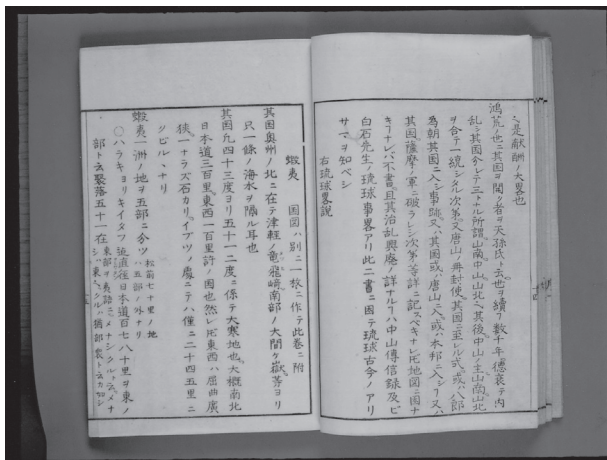 ハ是獻酬ノ大畧也
鴻荒ノ也ニ其囯ヲ開ク者ヲ天孫氏ト云也ヲ續フ數千年德衰テ内
乱シ其囯分レテ三トナル所謂山南中山山北ニ其後中山ノ王山南山北
ヲ合テ一統シタル次第又唐山ノ冊封使其囯ニ至ル式或ハ八郎
為朝其囯ニ入シ事跡又ハ其囯或ハ唐山ニ入或ハ本邦ニ入シヿ又ハ
其囯薩摩ノ軍ニ破ラレシ次第等詳ニ記スベキナレ𪜈地圖ニ因ナ
キヿナレバ不書且其治乱興廢ノ詳ナルヿハ中山傳信録及ビ
白石先生ノ琉球事畧アリ此二書ニ因テ琉球古今ノアリ
サマヲ知ベシ
右琉球畧説
蝦夷 囯圖ハ別ニ一枚ニ作テ此巻ニ附
其囯奥州ノ北ニ在テ津軽ノ竜飛崎南部ノ大間ケ嶽等ヨリ
只一條ノ海水ヲ隔ル耳也
其囯凡四十三度ヨリ五十一二度ニ係テ大寒地也大概南北
日本道三百里東西一百里許ノ囯也然レ𪜈東西ハ屈曲廣
狹一ナラズ石カリイブツノ處ニテハ僅ニ二十四五里ニ
ツヾルヽナリ
蝦夷一洲ノ地ヲ五部ニ分ツ 松前七十里ノ地ハ五部ノ外ナリ
○ハラキヨリキイタツフ迠直徑日本道百七八十里ヲ東ノ
部ト云聚落五十一在